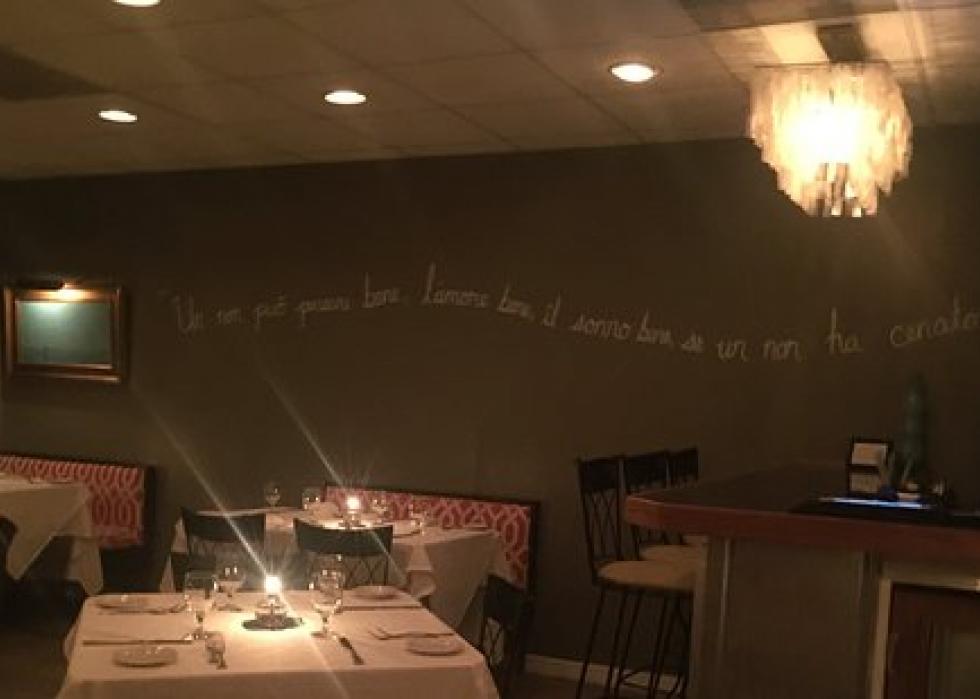 "Un non può pensare bene, l'amore bene, il sonno bene, se un non ha cenato